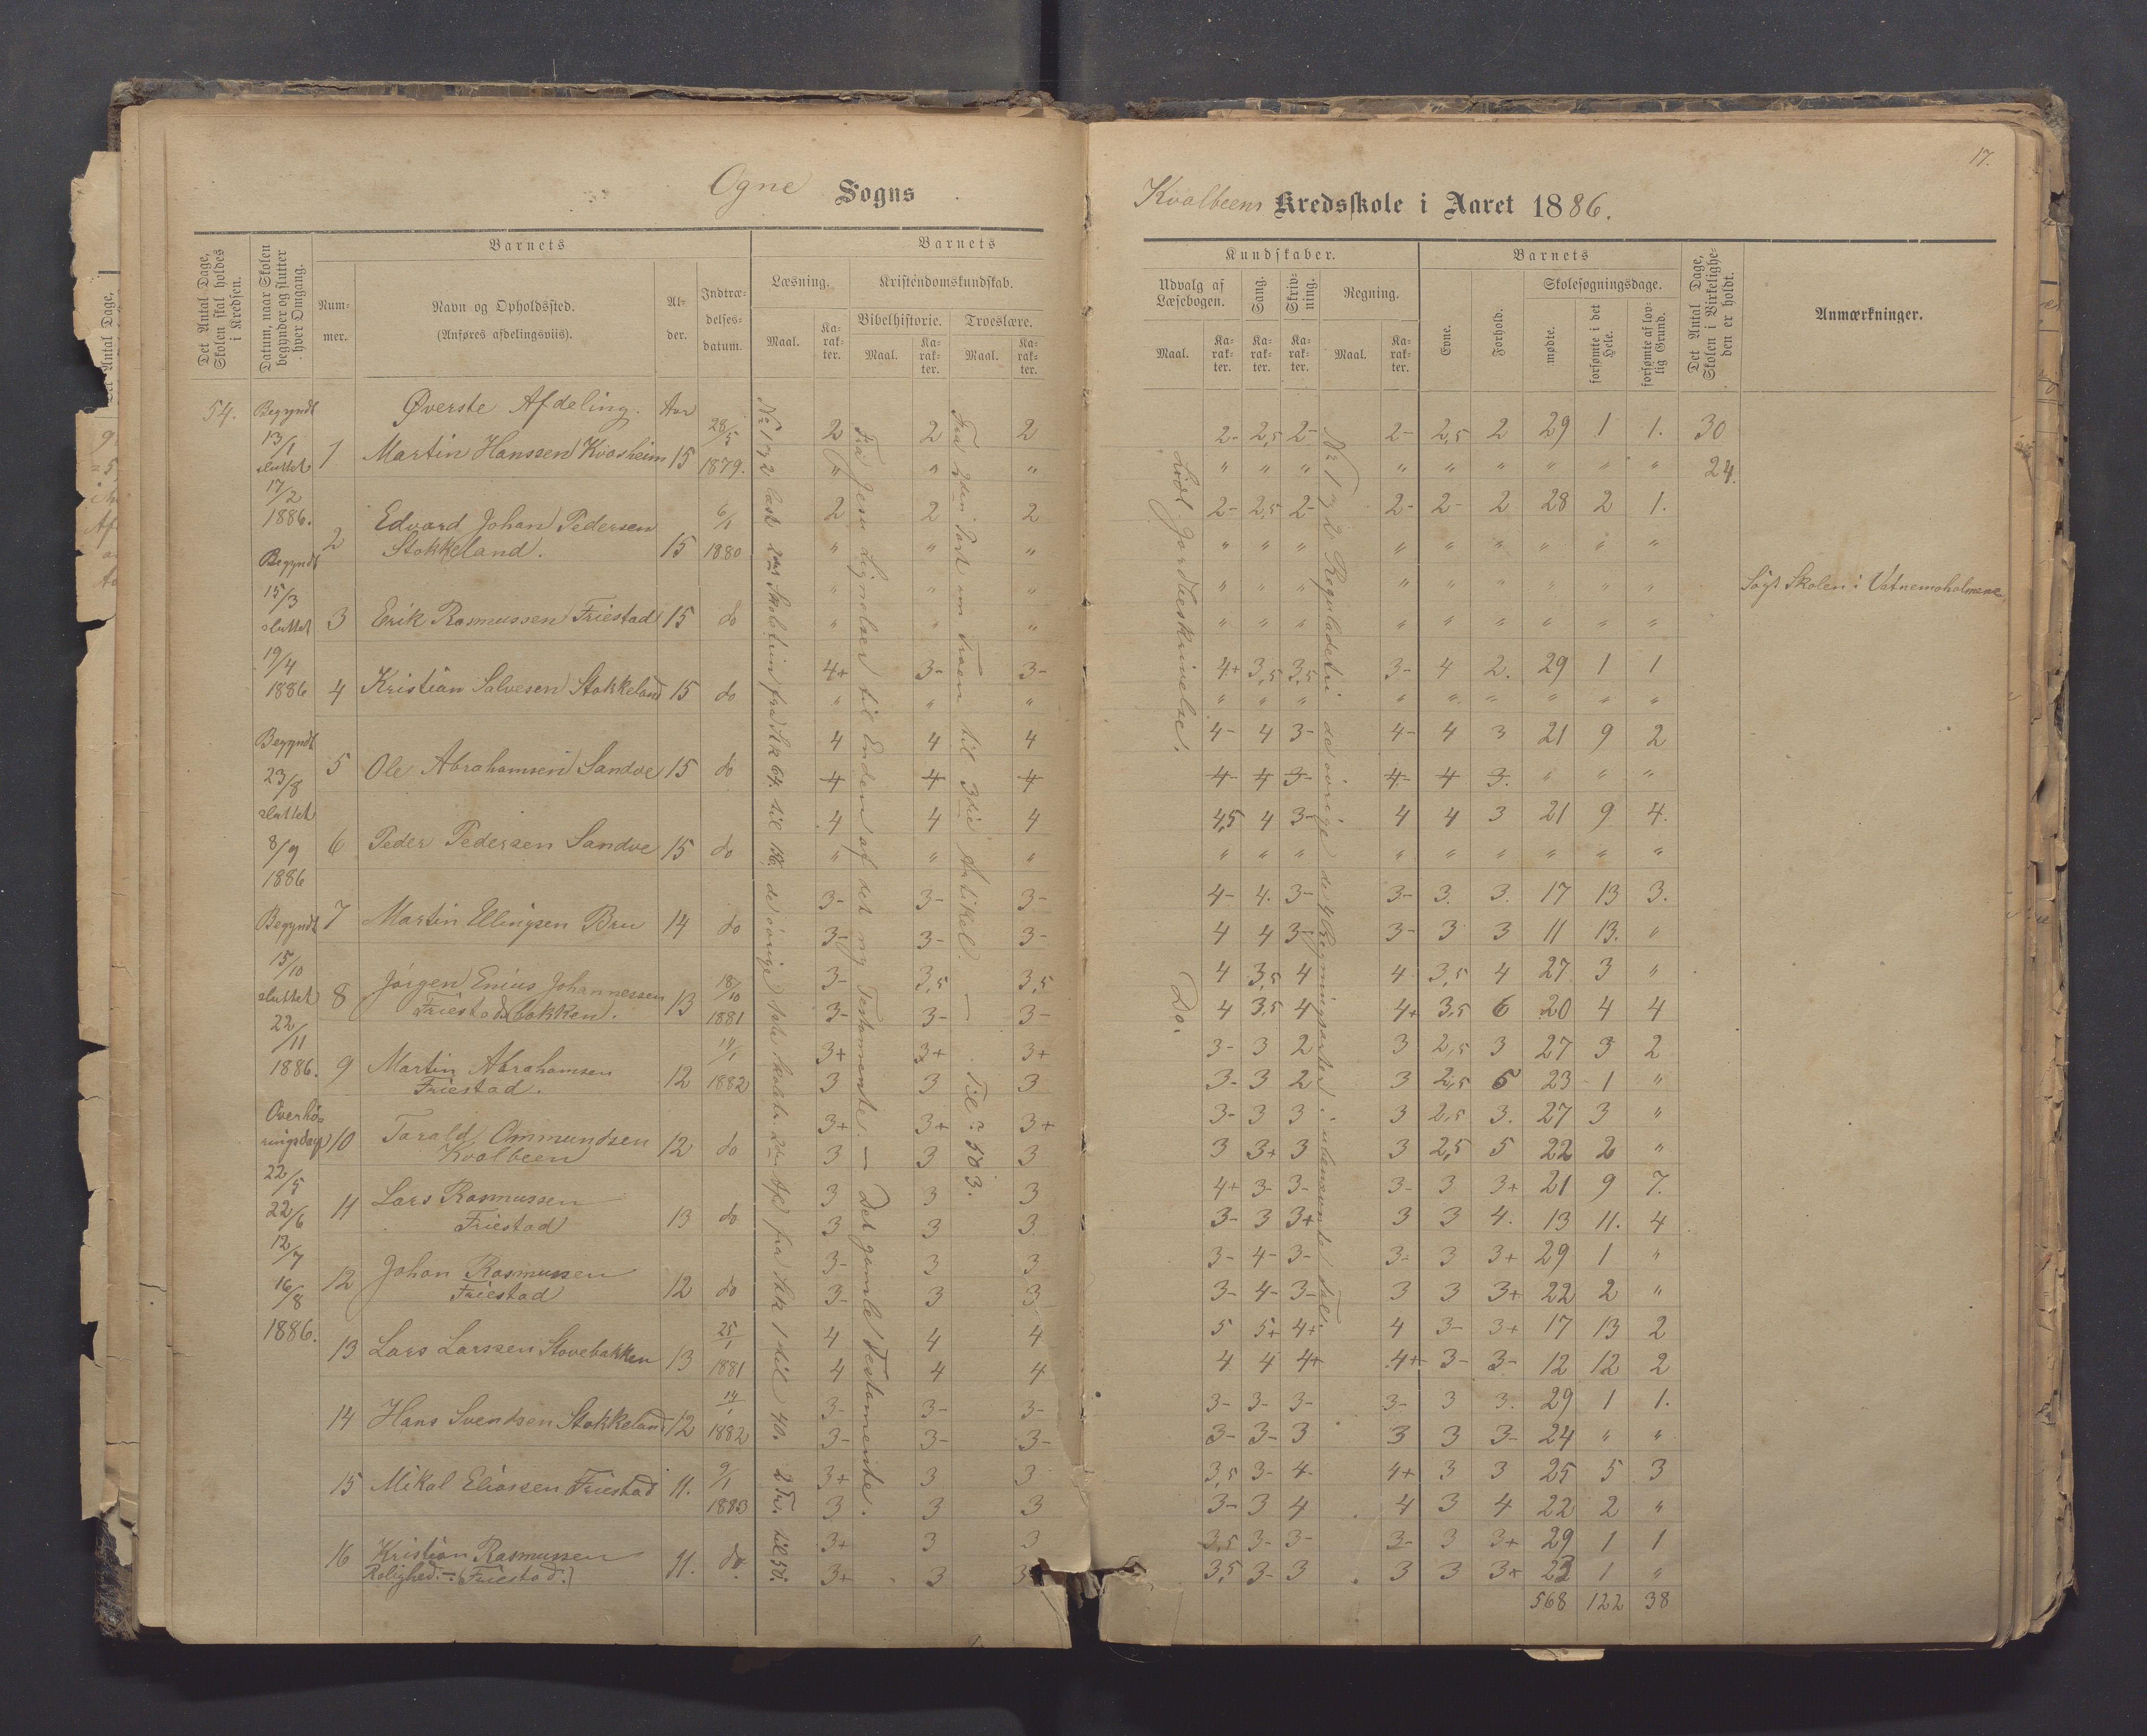 Ogne Sogns
Det Antal Dage, Skolen skal holdes i Kredsen.
Datum, naar Skolen begynder og slutter hver Omgang.
Barnets
Nummer.
Navn og Opholdssted.
(Anføres afdelingsviis).
Alder.
Indtrædelsesdatum.
Barnets
Læsning.
Maal.
Karakter.
Kristendomskundskab.
Bibelhistorie.
Maal.
Karakter.
Troeslære.
Maal.
Karakter.
54.
Begyndt
13/1
sluttet
17/2
1886.
Begyndt
15/3
sluttet
19/4
1886
Begyndt
23/8
sluttet
8/9
1886
Begyndt
15/10
sluttet
22/11
1886.
Overhøringsdage
22/5
22/6
12/7
16/8
1886.
Øverste Afdeling. Aar
1 Martin Hanssen Kvasheim 15 28/5 1879. 2 2 2
" " "
2 Edvard Johan Pedersen Stokkeland. 15 6/1 1880 2 2 2
" " "
3 Erik Rasmussen Friestad 15 do " " "
" " "
4 Kristian Salvesen Stokkeland 15 do 4+ 3- 3-
" " "
5 Ole Abrahamsen Sandve 15 do 4 4 4
4 4 4
6 Peder Pedersen Sandve 15 do 4 4 4
" " "
7 Martin Ellingsen Bru 14 do 3- 3- 3-
3- 3- 3-
8 Jørgen Enius Johannessen Friestadbakken. 13 18/10 1881 3- 3,5 3,5
3- 3- 3-
9 Martin Abrahamsen Friestad. 12 14/1 1882 3+ 3+ 3+
3 3 3
10 Tarald Ommundsen Kvalbeen 12 do 3+ 3+ 3+
3 3 3
11 Lars Rasmussen Friestad 13 do 3 3 3
3 3 3
12 Johan Rasmussen Friestad 12 do 3- 3 3
3- 3 3
13 Lars Larssen Stovebakken 13 25/1 1881 4 4 4
4 4 4
14 Hans Svendsen Stokkeland 12 14/1 1882 3- 3- 3-
3- 3- 3-
15 Mikal Eliassen Friestad 11. 9/1 1883 3+ 3 3
3 3 3
16 Kristian Rasmussen Rolighed. - (Friestad.) 11. do. 3+ 3 3
3+ 3 3
No 1 og 2 læst 2det Skoletrin fra Stk 64. til 136. de øvrige
fra Stk 1 til 40. 2 Tr. til 50.
Fra Jesu Lignelser til Enden af det ny Testamente. — Det gamle Testamente.
Fra 2den Part om Troen til 3die Artikel. — Til 503.
17.
Kvalbeens Kredsskole i Aaret 1886.
Kundskaber.
Udvalg af Læsebogen.
Maal.
Karakter.
Sang.
Karakter.
Skrivning.
Karakter.
Regning.
Maal.
Karakter.
Barnets
Evne.
Forhold.
Skolesøgningsdage.
mødte.
forsømte i det Hele.
forsømte af lovlig Grund.
Det Antal Dage, Skolen i Virkeligheden er holdt.
Anmærkninger.
Lidt Jordbeskrivelse.
Do.
No 1 og 2 Reguladetri de øvrige de 4 Regningsarter i ubenævnte Tal.
2- 2,5 2- 2- 2,5 2 29 1 1. 30
" " " " " " " " " 24.
2- 2,5 2- 2- 2- 2 28 2 1.
" " " " " " " " "
" " " " " " " " " Søgt Skolen i Vatnemoholmene
" " " " " " " " "
4+ 3,5 3,5 3- 4 2. 29 1 1
" " " " " " " " "
4- 4 3- 4- 4 3 21 9 2
4- 4 3- 4- 4 3. " " "
4,5 4 3- 4 4 3 21 9 4.
" " " " " " " " "
4- 4. 3- 3- 3. 3. 17 13 3.
4 4 3- 3- 3 3 11 13. "
4 3,5 4 4 3,5 4 27 3 "
4 3,5 4 4+ 3,5 6 20 4 4
3- 3 2 3 2,5 3 27 3 2
3- 3 2 3 2,5 5 23 1 "
3- 3 3 3 2,5 3. 27 3 "
3 3+ 3 3 2,5 5 22 2 "
4+ 3- 3- 3- 3 3+ 21 9 7.
3- 3 3+ 3 3 4. 13 11. 4
3- 4- 3- 3- 3 3+ 29 1 "
3- 4- 3- 3 3 3+ 22 2 "
5 5+ 4+ 4 3- 3+ 17 13 2
4 4 4+ 4+ 3- 3- 12 12 2
3- 3- 3- 3- 3 3. 29 1 1.
3- 3- 3 3 3 3- 24 " "
3,5 3- 4- 4+ 3 3 25 5 3
3- 3 4 4 3 4 22 2 "
3,5 3- 3- 3- 3 3+ 29 1 1
3,5 3- 3 3 3 3+ 23 1 "
568 122 38